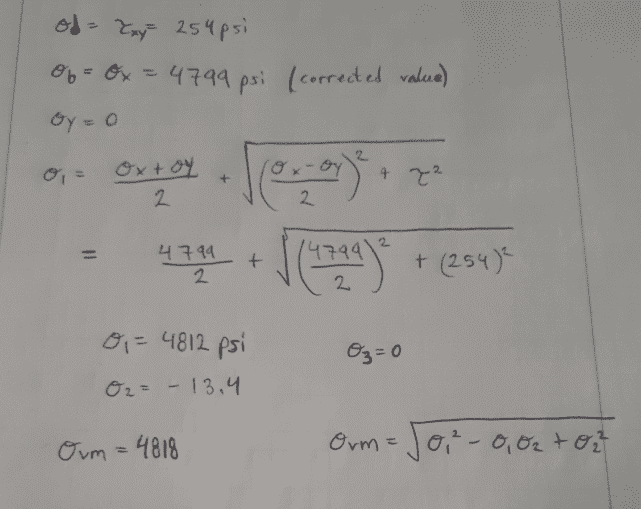 σd = τxy = 254 psi
σb = σx = 4799 psi (corrected value)
σy = 0
σ₁ = (σx + σy)/2 + √(((σx - σy)/2)² + τ²)
= 4799/2 + √((4799/2)² + (254)²)
σ₁ = 4812 psi σ₃ = 0
σ₂ = - 13.4
σvm = 4818 σvm = √(σ₁² - σ₁σ₂ + σ₂²)